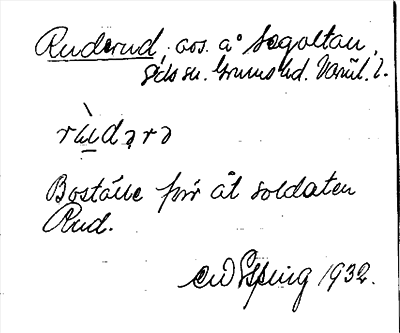 Ruderud, avs. å Segoltan,
Eds sn. Grums hd. Värml. l.
rùdərə
Boställe för åt soldaten
Rud.
1932.